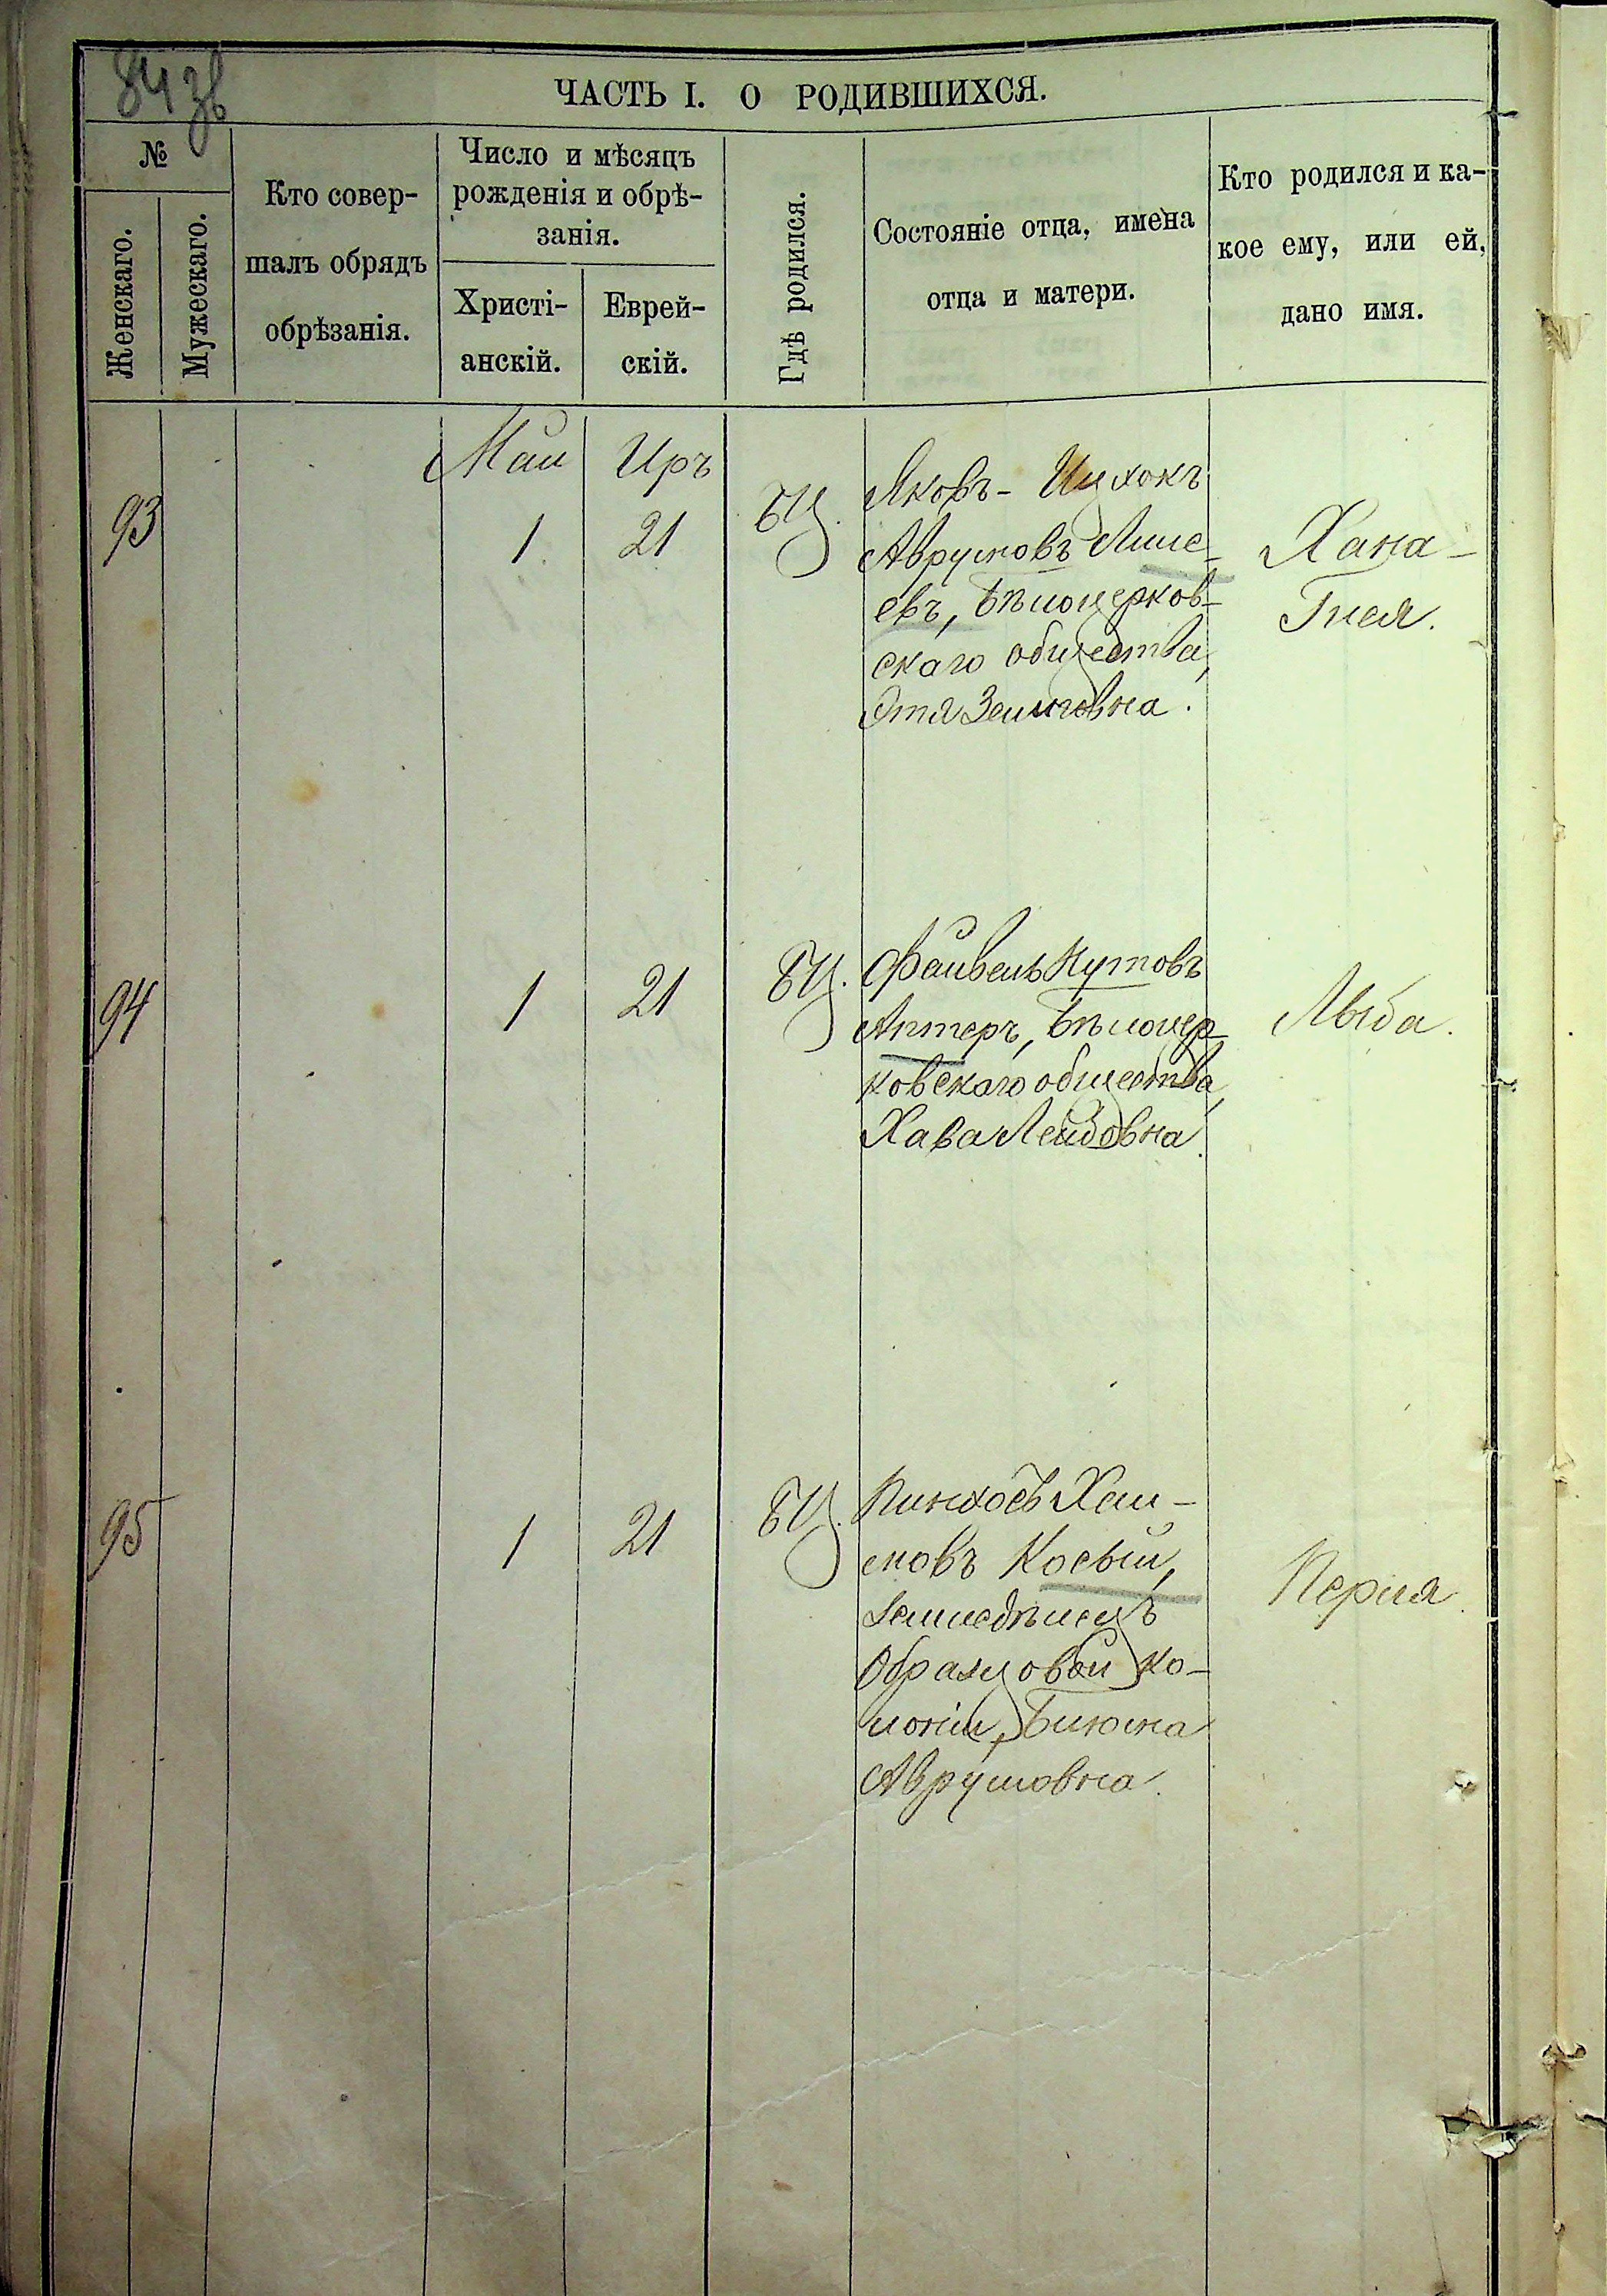 84 зв
ЧАСТЬ I. О РОДИВШИХСЯ.
№
Женскаго.
Мужескаго.
Кто совер-
шалъ обрядъ
обрѣзанія.
Число и мѣсяцъ
рожденія и обрѣ-
занія.
Христі-
анскій.
Еврей-
скій.
Гдѣ родился.
Состояніе отца, имена
отца и матери.
Кто родился и ка-
кое ему, или ей,
дано имя.
Май Иръ
93 1 21 БЦ.
Яковъ - Ицхокъ
Аврумовъ
евъ, Бѣлоцерков-
скаго общества,
Этя Зельмовна.
Хана -
Гнея.
94 1 21 БЦ.
Файвель Нутовъ
Аптеръ, Бѣлоцер-
ковскаго общества,
Хава Лейбовна.
Лыба.
95 1 21 БЦ.
Пинхосъ Хаи-
мовъ Косый,
Земледѣлецъ
Образцовой ко-
лоніи, Блюма
Аврумовна.
Перля.